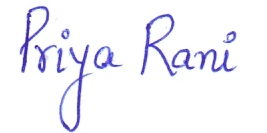 Priya Rani